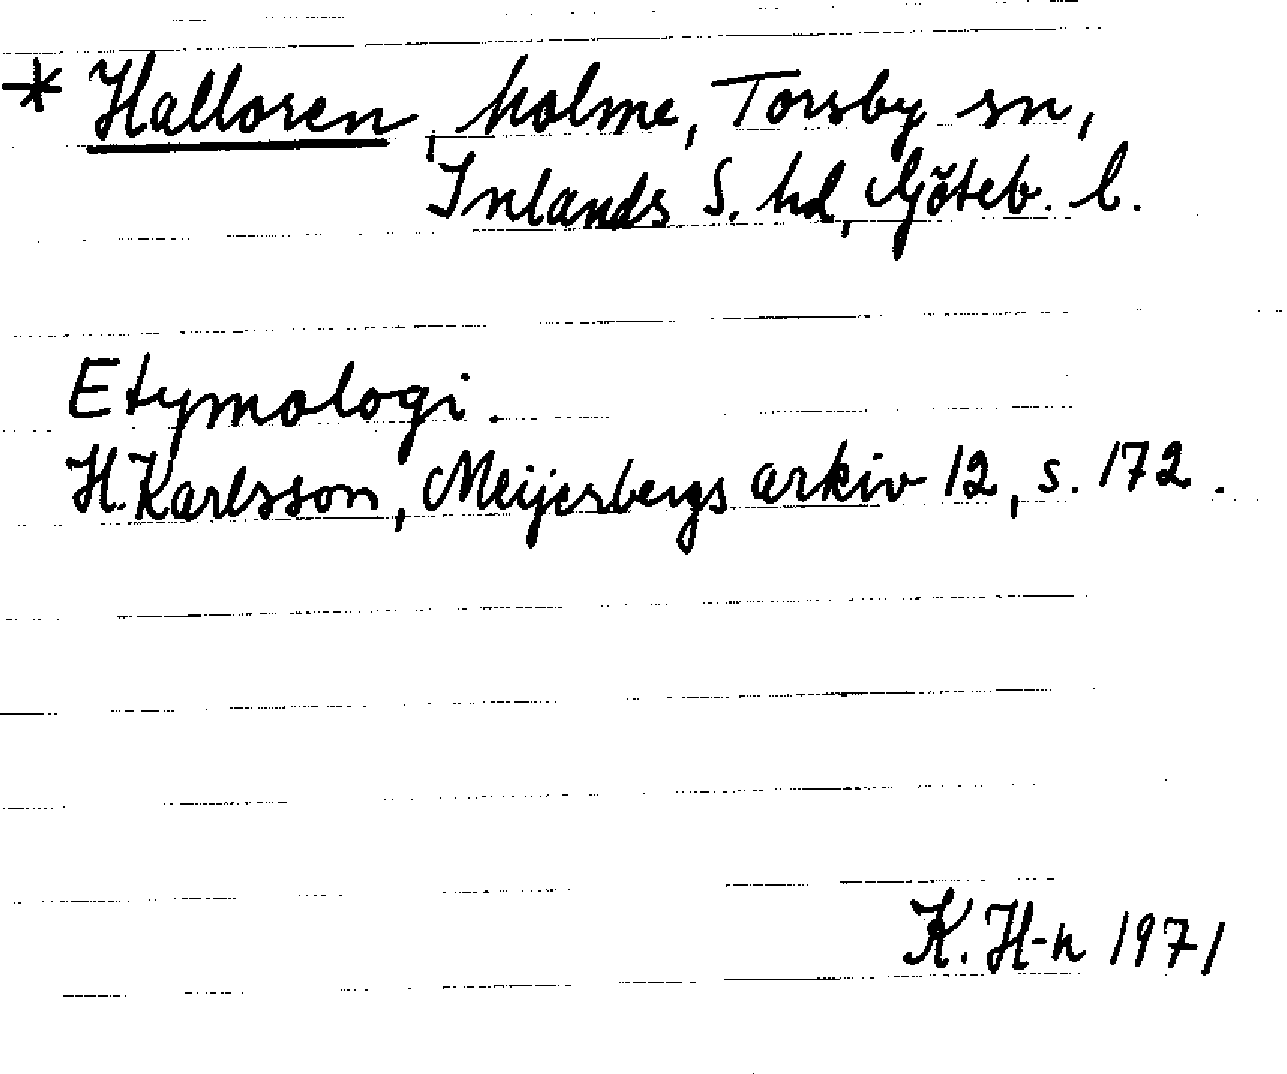 * Halloren, holme, Torsby sn,
Inlands S. hd, Göteb. l.
Etymologi.
H. Karlsson, Meijerbergs arkiv 12, s. 172.
K. H-n 1971